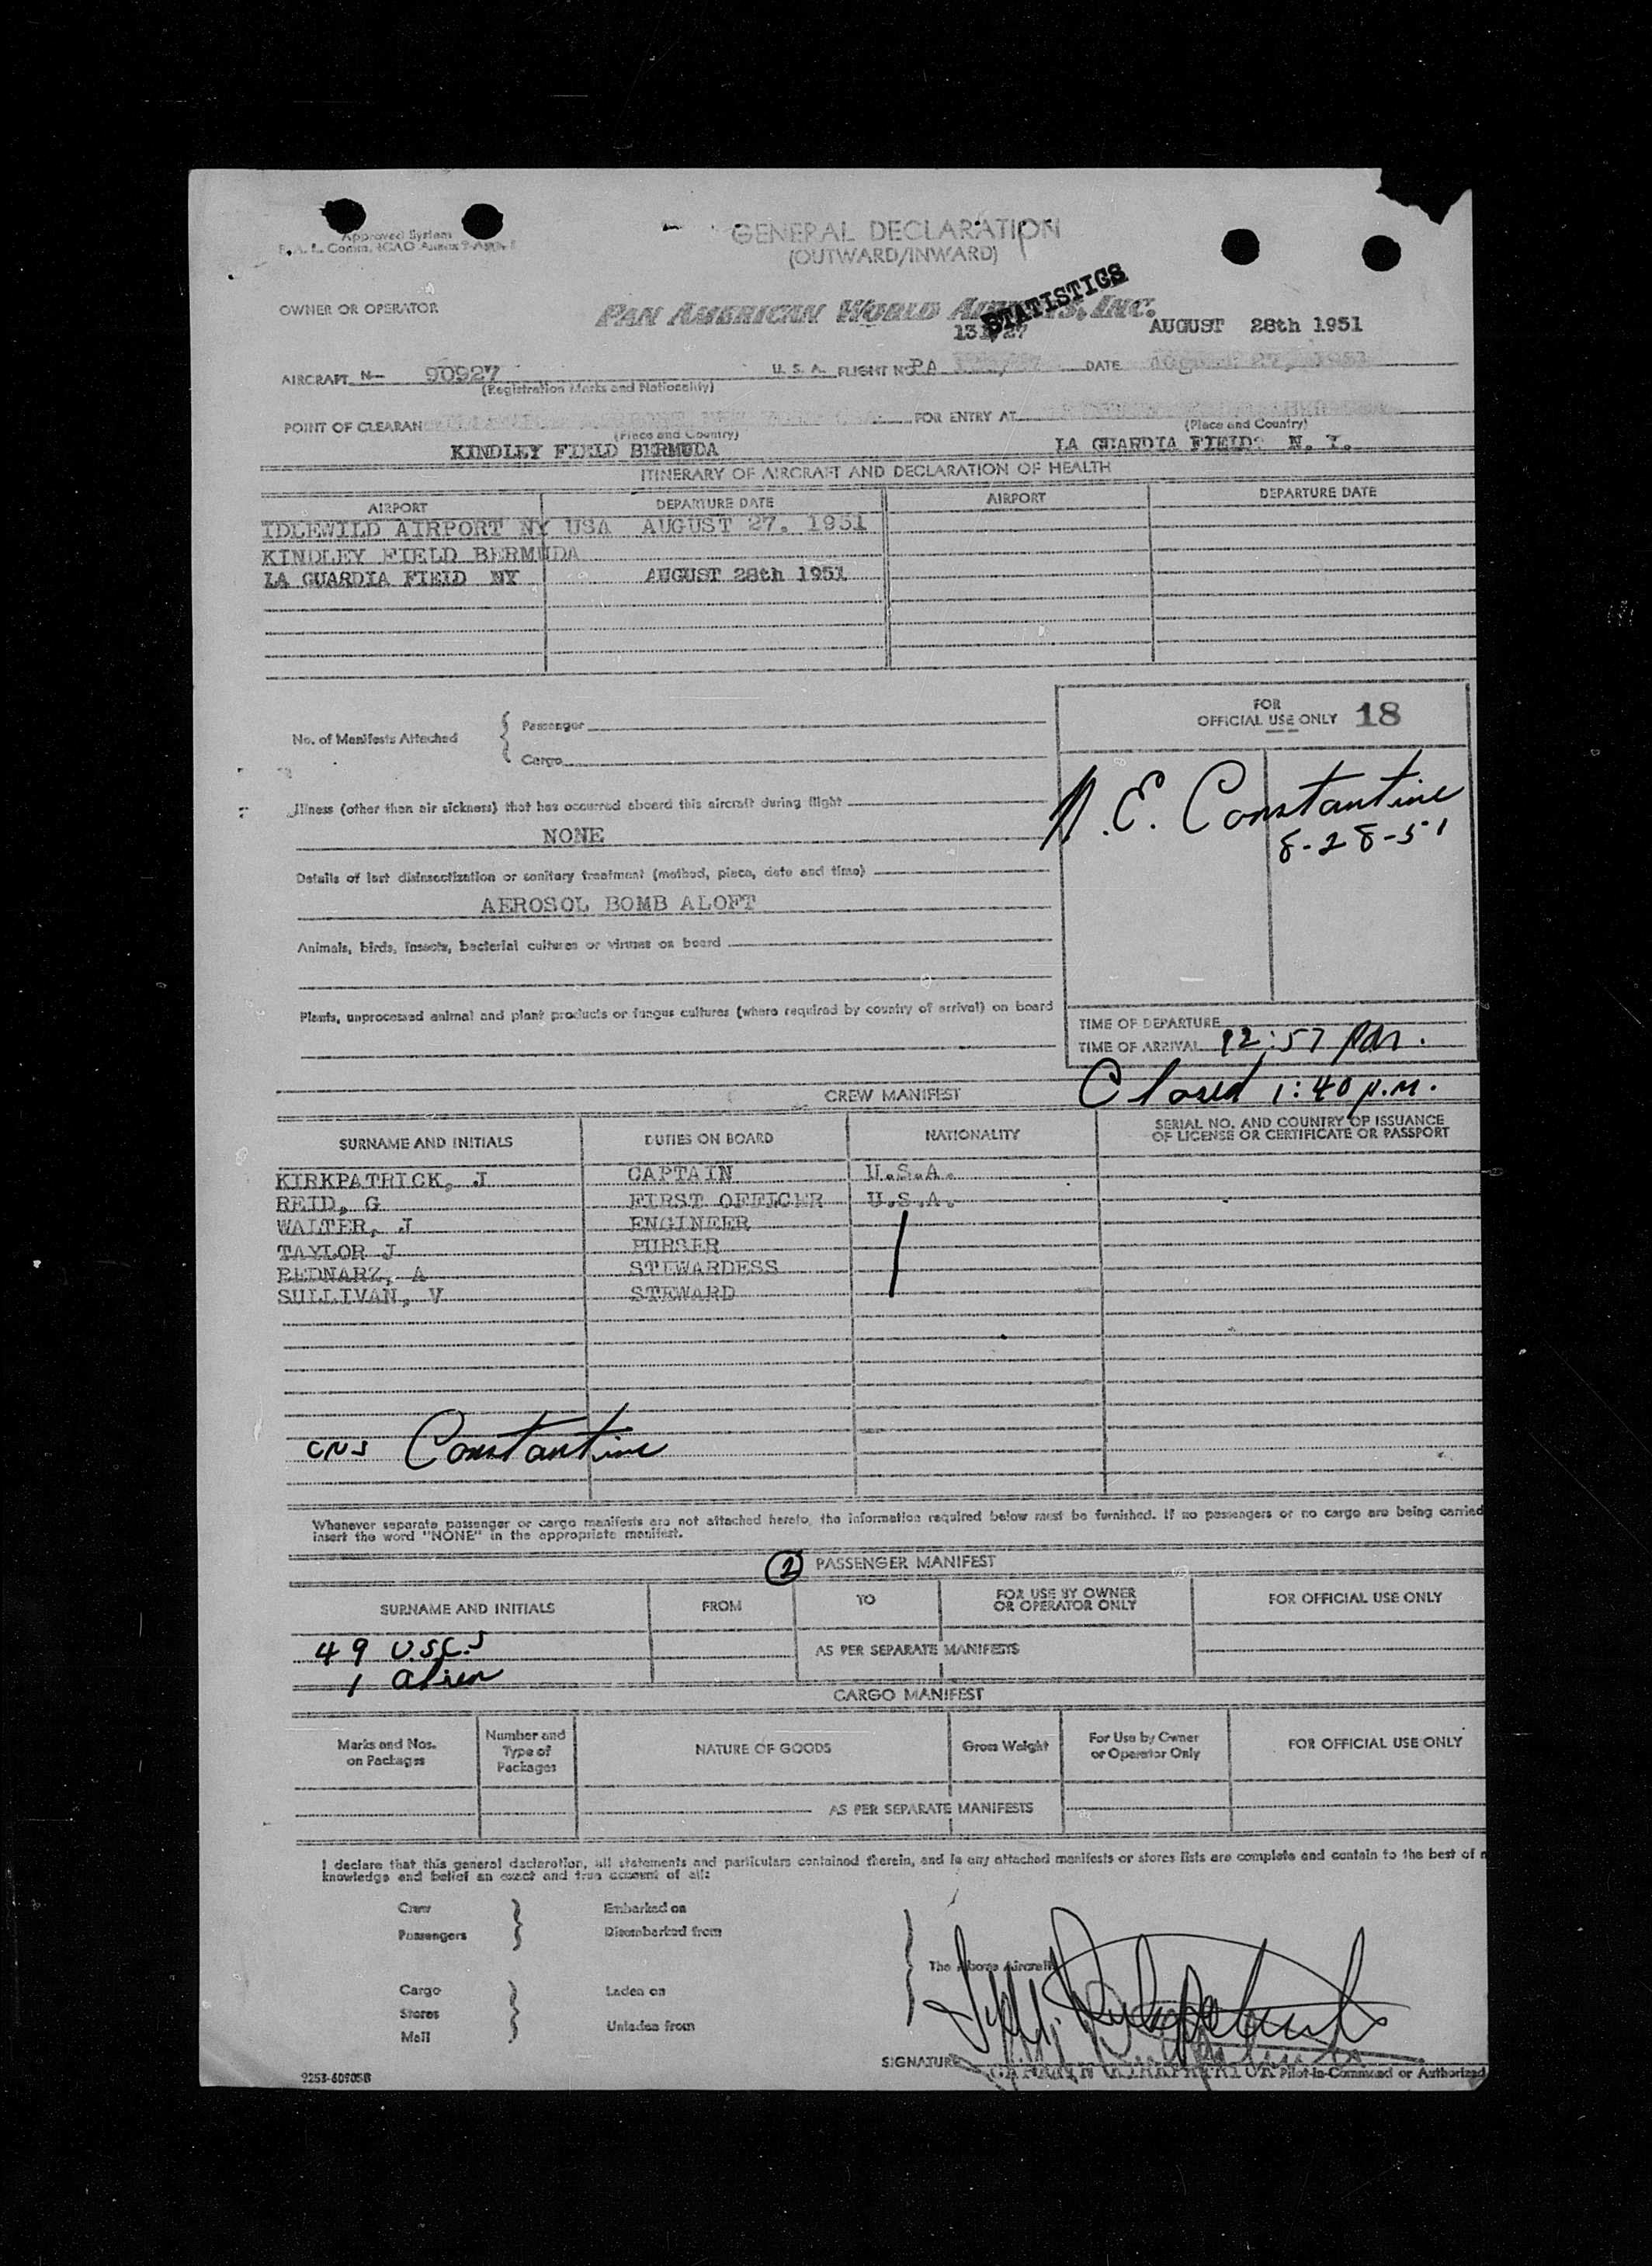 Approved System
F. A. L. Comm. ICAO Annex 9-App.
GENERAL DECLARATION
(OUTWARD/INWARD)
OWNER OR OPERATOR
PAN AMERICAN WORLD AIRWAYS, INC.
STATISTICS
131/27 AUGUST 28th 1951
AIRCRAFT N- 90927 U. S. A. FLIGHT NO. PA DATE
(Registration Marks and Nationality)
POINT OF CLEARAN FOR ENTRY AT
(Place and Country) (Place and Country)
KINDLEY FIELD BERMUDA LA GUARDIA FIELD: N. Y.
ITINERARY OF AIRCRAFT AND DECLARATION OF HEALTH
AIRPORT DEPARTURE DATE AIRPORT DEPARTURE DATE
IDLEWILD AIRPORT NY USA AUGUST 27. 1951
KINDLEY FIELD BERMUDA
LA GUARDIA FIELD NY AUGUST 28th 1951
No. of Manifests Attached { Passenger
Cargo
FOR
OFFICIAL USE ONLY 18
N. E. Constantine
8-28-51
Illness (other than air sickness) that has occurred aboard this aircraft during flight
NONE
Details of last disinsectization or sanitary treatment (method, place, date and time)
AEROSOL BOMB ALOFT
Animals, birds, insects, bacterial cultures or viruses on board
Plants, unprocessed animal and plant products or fungus cultures (where required by country of arrival) on board
TIME OF DEPARTURE
TIME OF ARRIVAL 12:57 PM.
Closed 1:40 p.m.
CREW MANIFEST
SURNAME AND INITIALS DUTIES ON BOARD NATIONALITY SERIAL NO. AND COUNTRY OF ISSUANCE
OF LICENSE OR CERTIFICATE OR PASSPORT
KIRKPATRICK, J CAPTAIN U.S.A.
REID, G FIRST OFFICER U.S.A.
WALTER, J ENGINEER
TAYLOR J PURSER
BEDNARZ, A STEWARDESS
SULLIVAN, V STEWARD
Constantine
Whenever separate passenger or cargo manifests are not attached hereto, the information required below must be furnished. If no passengers or no cargo are being carried
insert the word "NONE" in the appropriate manifest.
2 PASSENGER MANIFEST
SURNAME AND INITIALS FROM TO FOR USE BY OWNER
OR OPERATOR ONLY FOR OFFICIAL USE ONLY
49 U.S.C.s
AS PER SEPARATE MANIFESTS
1 alien
CARGO MANIFEST
Marks and Nos.
on Packages
Number and
Type of
Packages
NATURE OF GOODS
Gross Weight
For Use by Owner
or Operator Only
FOR OFFICIAL USE ONLY
AS PER SEPARATE MANIFESTS
I declare that this general declaration, all statements and particulars contained therein, and in any attached manifests or stores lists are complete and contain to the best of
knowledge and belief an exact and true account of all:
Crew } Embarked on
Passengers } Disembarked from
} The Above Aircraft
Cargo } Laden on
Stores
Mail } Unladen from
SIGNATURE CAPTAIN KIRKPATRICK Pilot-in-Command or Authorized
9253-60905B